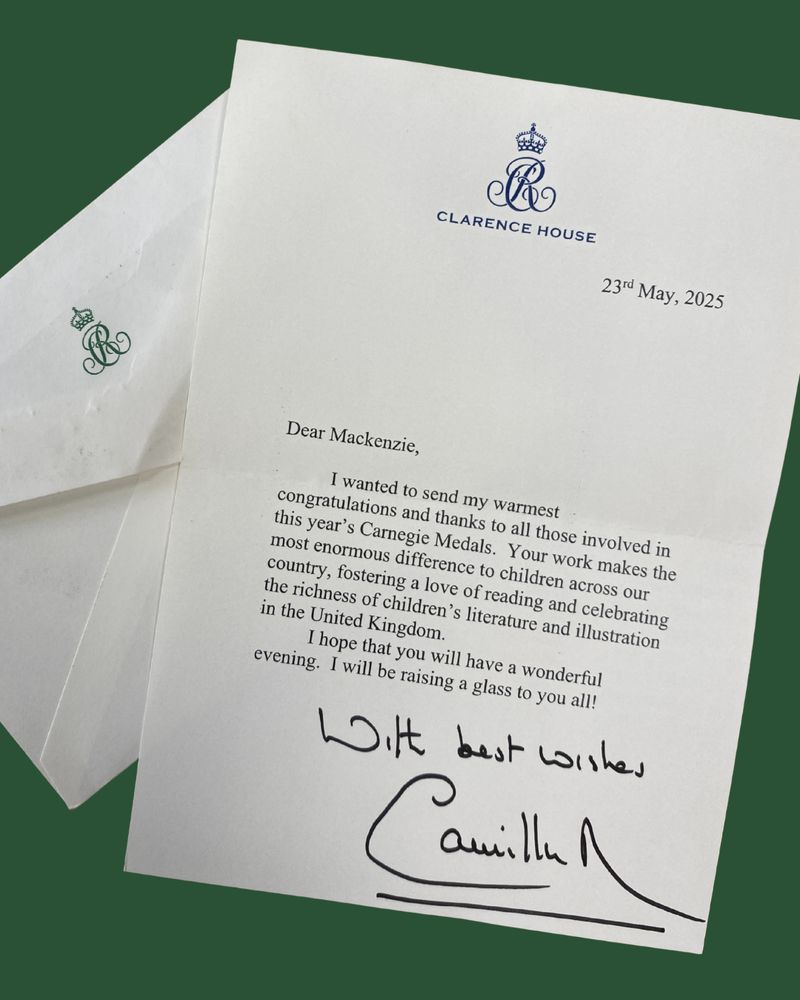 CLARENCE HOUSE
23rd May, 2025
Dear Mackenzie,
I wanted to send my warmest
congratulations and thanks to all those involved in
this year's Carnegie Medals. Your work makes the
most enormous difference to children across our
country, fostering a love of reading and celebrating
the richness of children's literature and illustration
in the United Kingdom.
I hope that you will have a wonderful
evening. I will be raising a glass to you all!
With best wishes
Camilla R